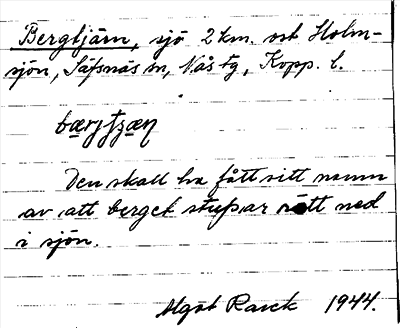 Bergtjärn, sjö 2 km. ost Holm-
sjön, Säfsnäs sn, Nås tg, Kopp. l.
Den skall ha fått sitt namn
av att berget stupar rätt ned
i sjön.
Algot Rarck 1944.